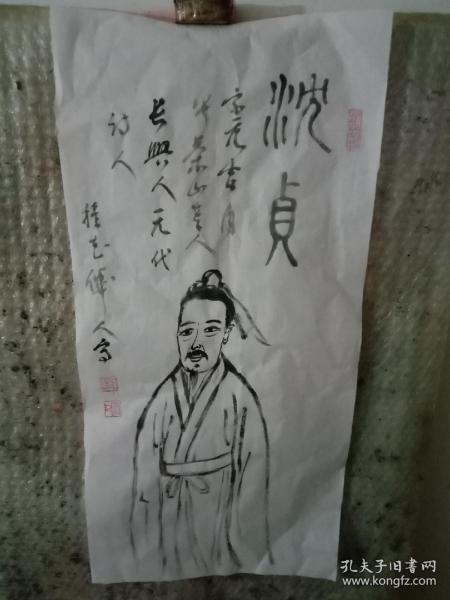 沈貞
字元吉自
号茶山老人
长興人元代
诗人
人写
孔夫子旧书网
www.kongfz.com